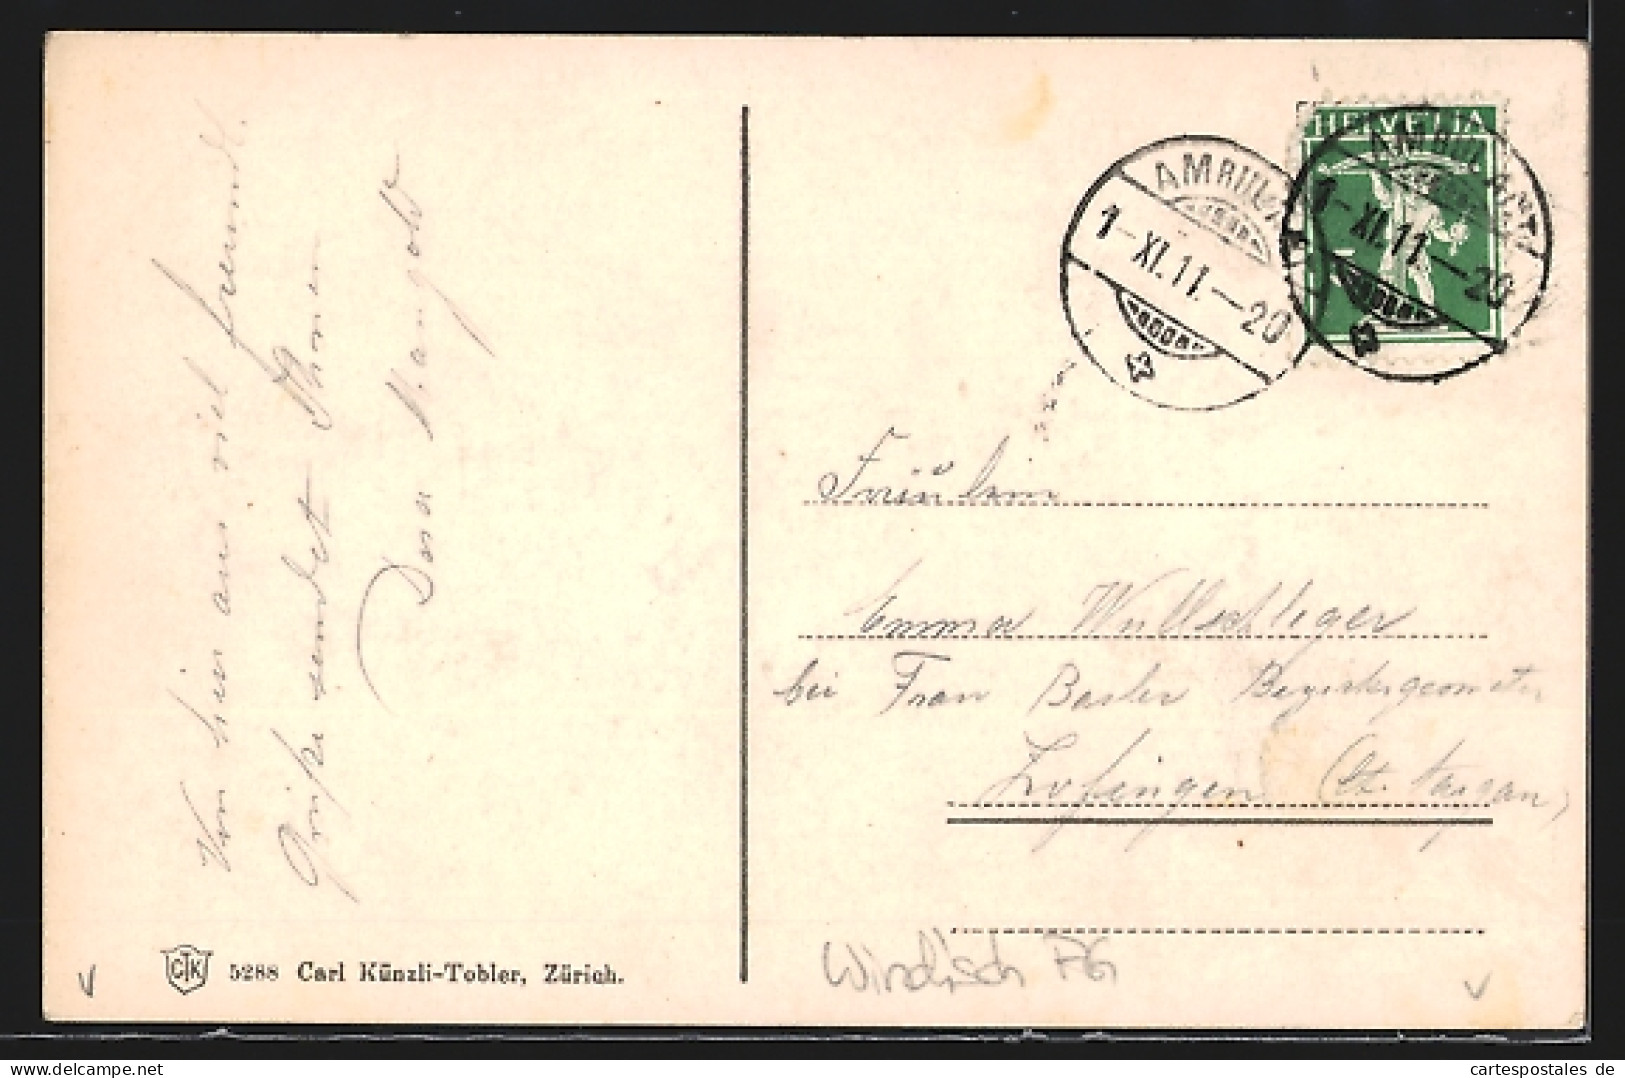 Von hier aus viel freundl.
Grüße sendet Ihnen
Dora Mangold
5288 Carl Künzli-Tobler, Zürich.
CTK
HELVETIA
AMBULANT
1-XI.11.-20
AMBULANT
1-XI.11.-20
Fräulein
Emma Wullschleger
bei Frau Basler Bezirksgeometer
Zofingen (Kt. Aargau)
Windisch AG
cartespostales de